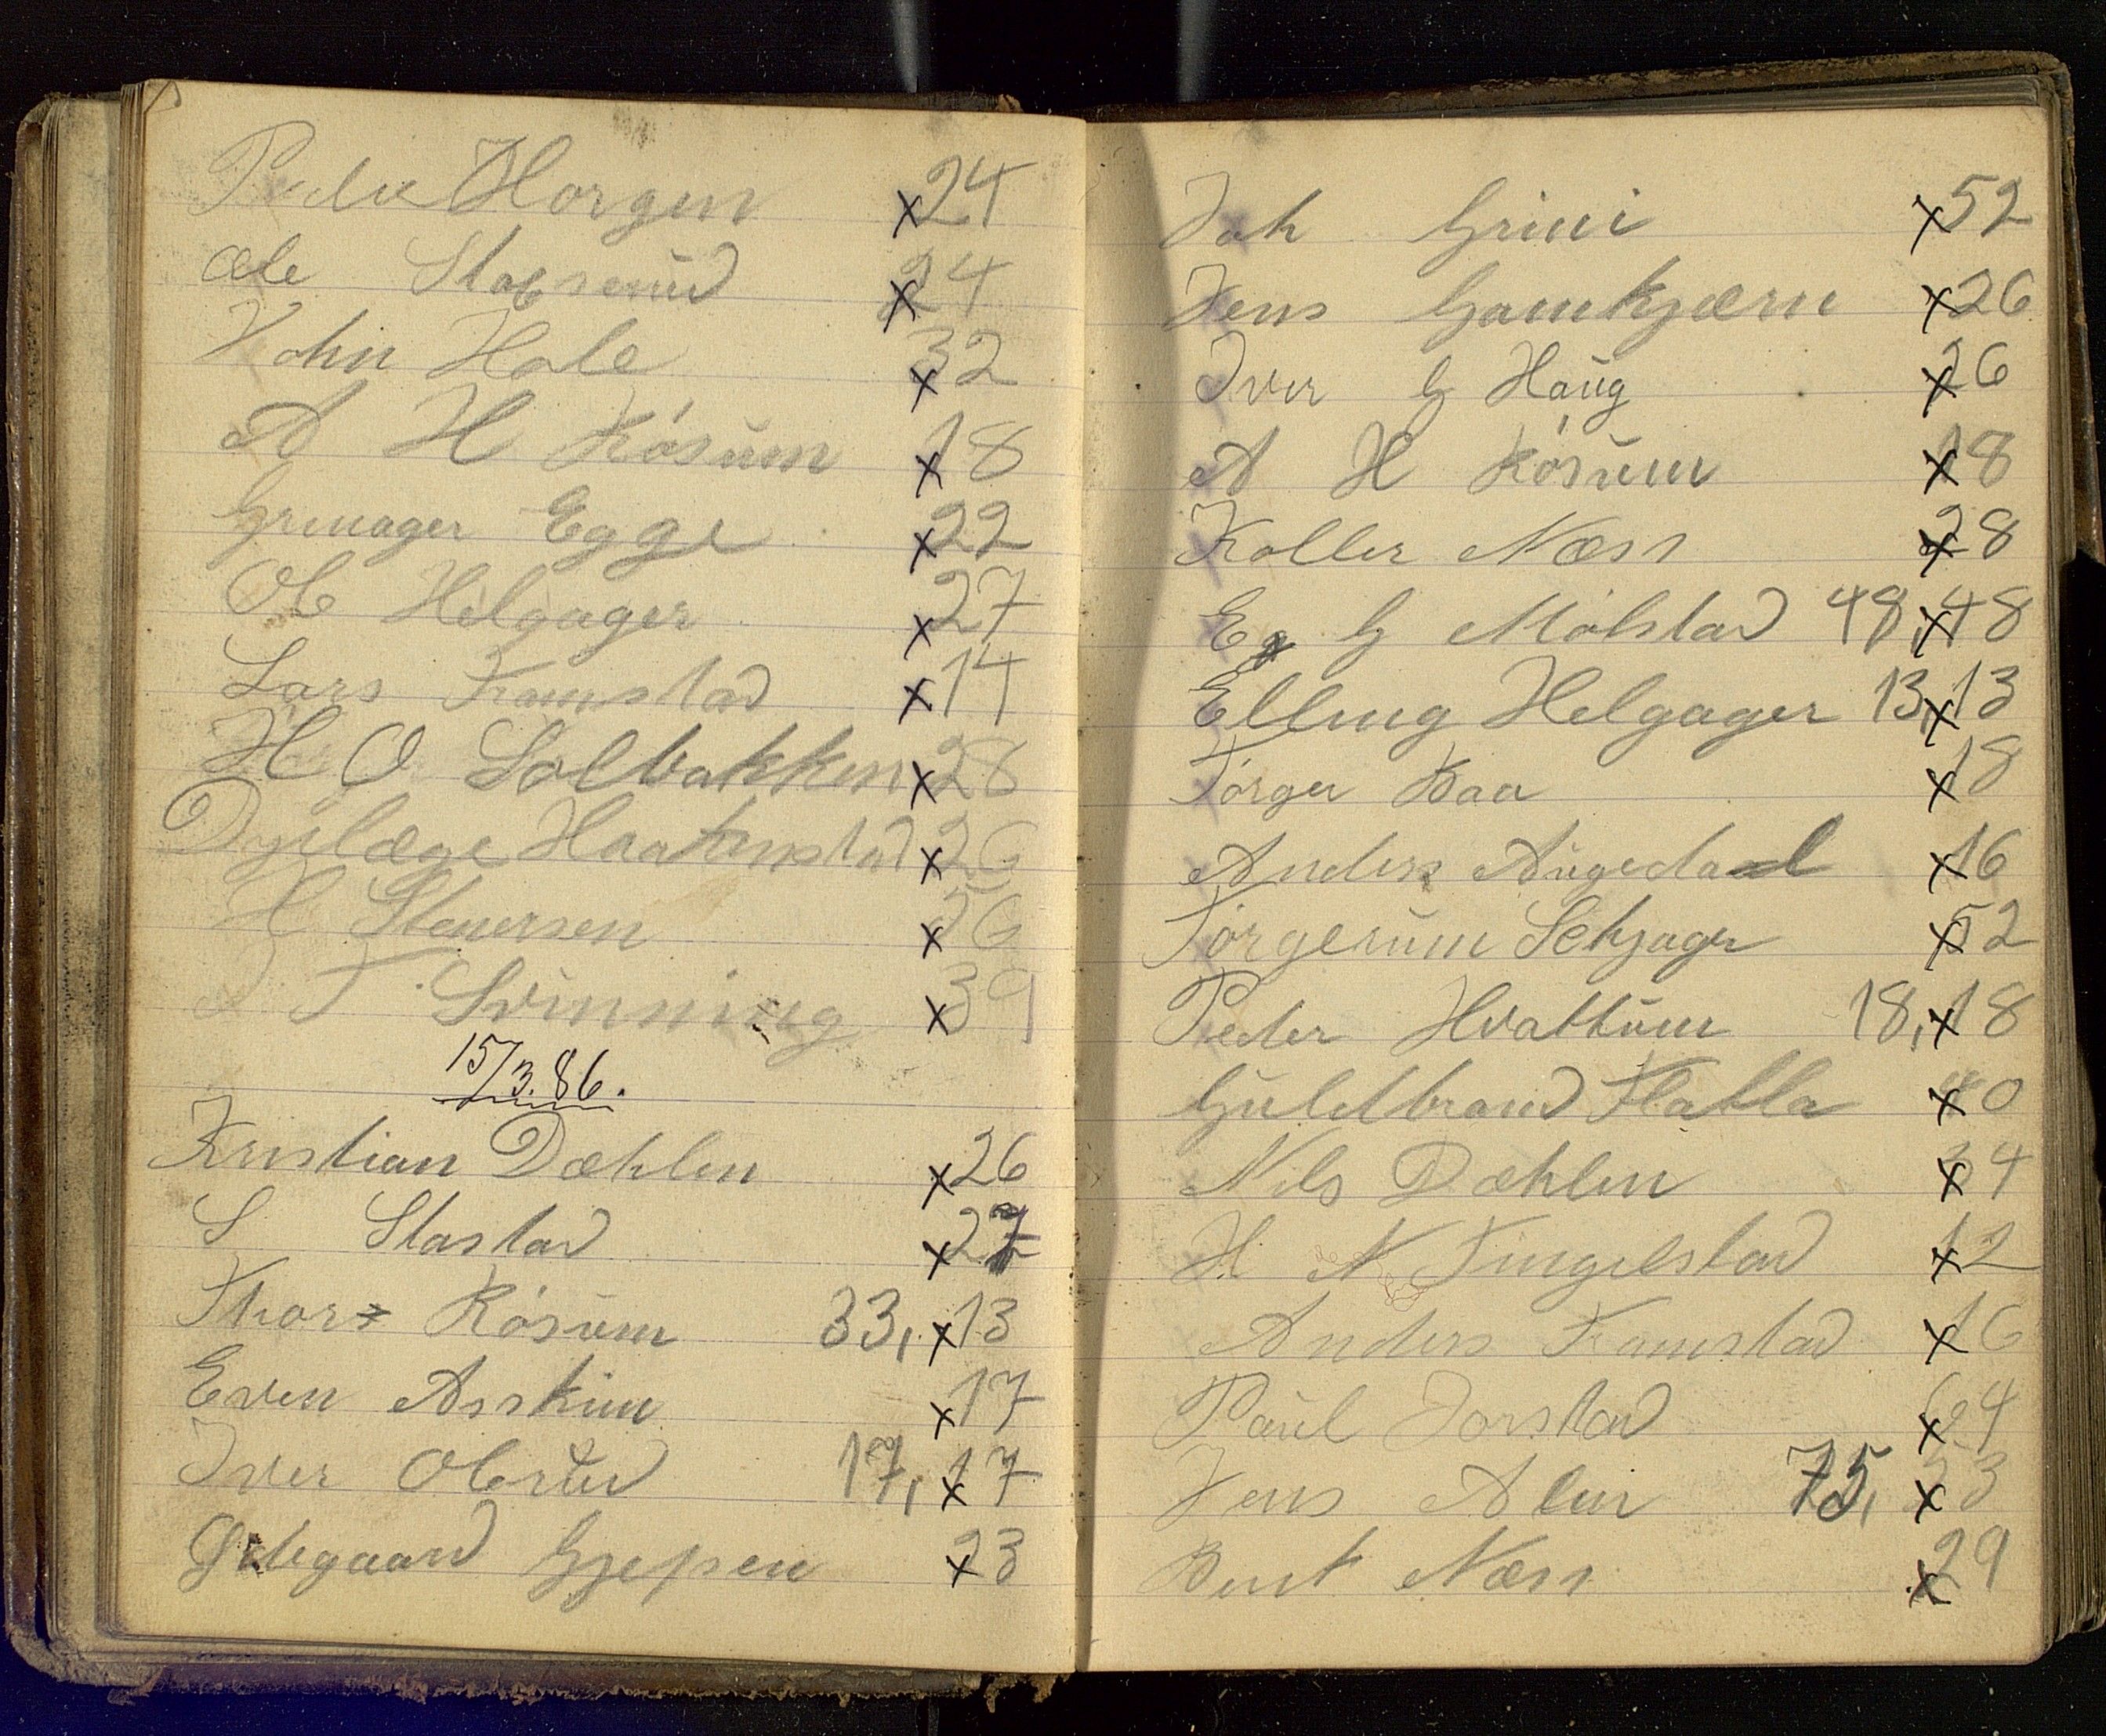 Peder Horgen x24
Ole Stabserud x24
John Hole x32
A H Røsum x18
Grinager Egge x22
Ole Helgager x27
Lars Framstad x14
H O Solbakken x28
Dyrlæge Haakenstad x26
H Stenersen x26
T Svinning x39
15/3.86.
Kristian Dæhlen x26
S Stastad x27
Thor Røsum 33, x13
Even Asskim x17
Iver Olerud 17, x17
Ødegaard Gjepen x23
Joh Grini x52
Jens Gamkjærn x26
Iver G Haug x26
A H Røsum x18
Koller Næss x28
E G Mølstad 48, x48
Elling Helgager 13, x13
Torger Kaa x18
Anders Augedaal x16
Torgerium Sehjager x52
Peder Hvattum 18, x18
Guldbrand Flatla x40
Nils Dæhlen x34
H N Tingelstad x12
Anders Framstad x16
Paul Jorstad x64
Jens Alm 75, x53
Bent Næss x29